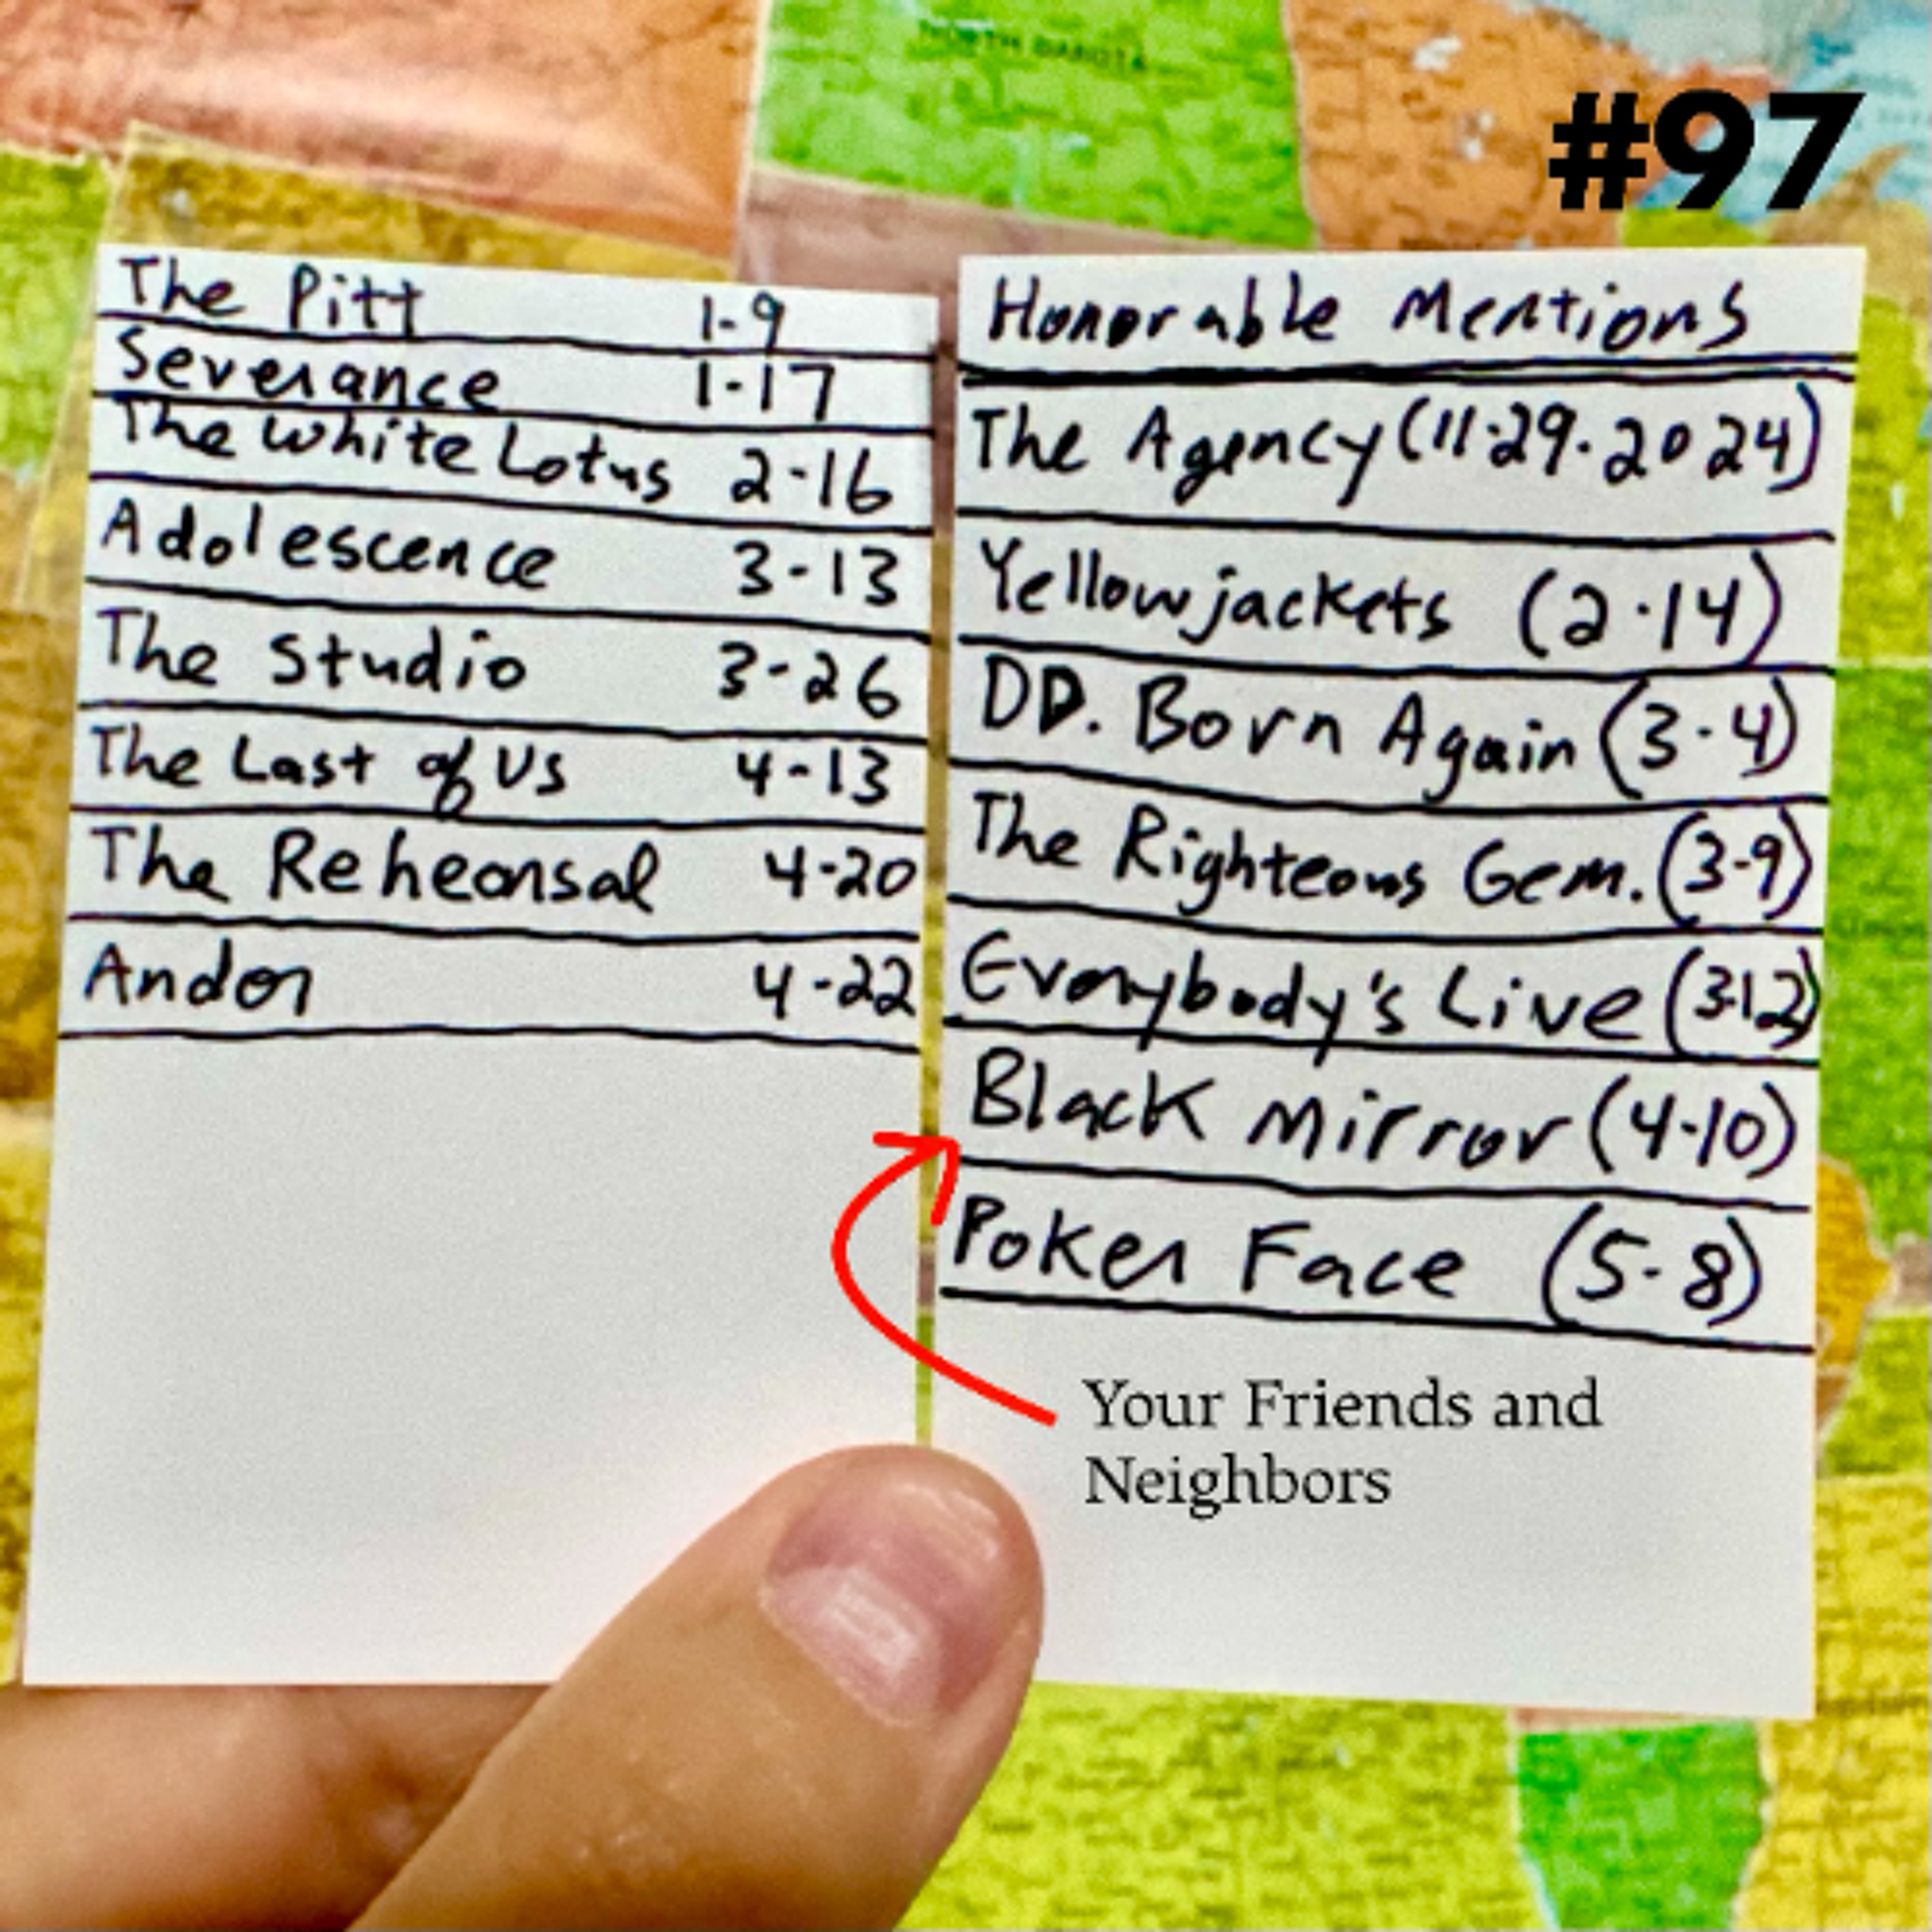 NORTH DAKOTA
#97
The Pitt 1-9
Severance 1-17
The White Lotus 2-16
Adolescence 3-13
The Studio 3-26
The Last of Us 4-13
The Rehearsal 4-20
Andor 4-22
Honorable Mentions
The Agency (11.29.2024)
Yellowjackets (2.14)
DD. Born Again (3.4)
The Righteous Gem. (3-9)
Everybody's Live (3.12)
Black Mirror (4.10)
Poker Face (5-8)
Your Friends and
Neighbors